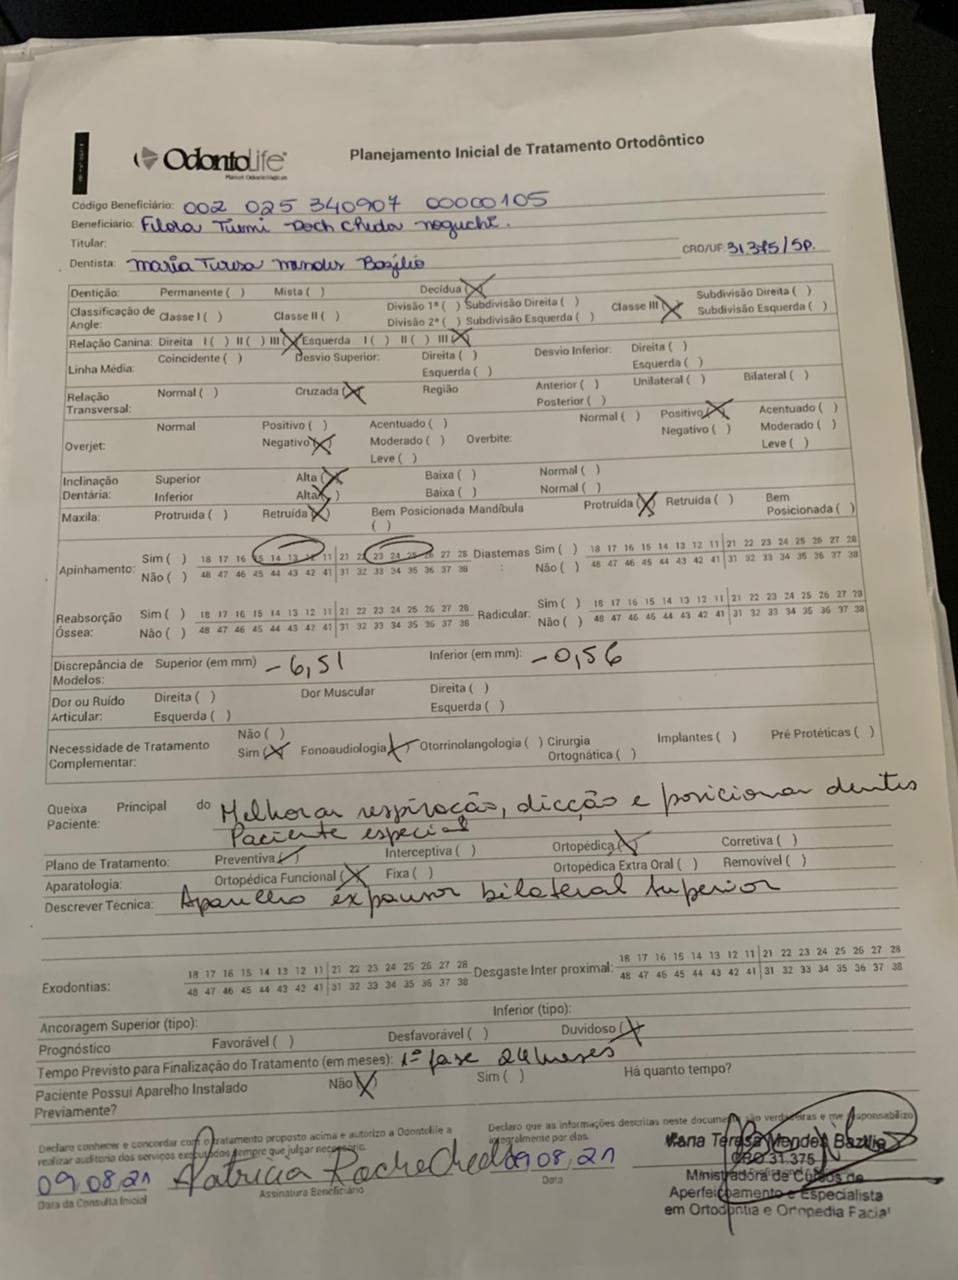 OdontoLife
Planos Odontológicos
Planejamento Inicial de Tratamento Ortodôntico
Código Beneficiário: 002 025 340907 00000105
Beneficiário: Tuemi Roch Cheda noguchi.
Titular:
CRO/UF: 31.375/SP.
Dentista: maria Teresa mendes Bazilio
Dentição: Permanente ( ) Mista ( ) Decídua (X)
Classificação de Angle: Classe I ( ) Classe II ( ) Divisão 1ª ( ) Subdivisão Direita ( ) Classe III (X) Subdivisão Direita ( )
Divisão 2ª ( ) Subdivisão Esquerda ( ) Subdivisão Esquerda ( )
Relação Canina: Direita I ( ) II ( ) III (X) Esquerda I ( ) II ( ) III (X)
Linha Média: Coincidente ( ) Desvio Superior: Direita ( ) Desvio Inferior: Direita ( )
Esquerda ( ) Esquerda ( )
Relação Transversal: Normal ( ) Cruzada (X) Região Anterior ( ) Unilateral ( ) Bilateral ( )
Posterior ( )
Overjet: Normal Positivo ( ) Acentuado ( ) Overbite: Normal ( ) Positivo (X) Acentuado ( )
Negativo (X) Moderado ( ) Negativo ( ) Moderado ( )
Leve ( ) Leve ( )
Inclinação Dentária: Superior Alta (X) Baixa ( ) Normal ( )
Inferior Alta (X) Baixa ( ) Normal ( )
Maxila: Protruida ( ) Retruída (X) Bem Posicionada ( ) Mandíbula Protruída (X) Retruída ( ) Bem Posicionada ( )
Apinhamento: Sim ( ) 18 17 16 15 14 13 12 11 21 22 23 24 25 26 27 28 Diastemas: Sim ( ) 18 17 16 15 14 13 12 11 21 22 23 24 25 26 27 28
Não ( ) 48 47 46 45 44 43 42 41 31 32 33 34 35 36 37 38 Não ( ) 48 47 46 45 44 43 42 41 31 32 33 34 35 36 37 38
Reabsorção Óssea: Sim ( ) 18 17 16 15 14 13 12 11 21 22 23 24 25 26 27 28 Radicular: Sim ( ) 18 17 16 15 14 13 12 11 21 22 23 24 25 26 27 28
Não ( ) 48 47 46 45 44 43 42 41 31 32 33 34 35 36 37 38 Não ( ) 48 47 46 45 44 43 42 41 31 32 33 34 35 36 37 38
Discrepância de Modelos: Superior (em mm) -6,51 Inferior (em mm): -0,56
Dor ou Ruído Articular: Direita ( ) Dor Muscular Direita ( )
Esquerda ( ) Esquerda ( )
Necessidade de Tratamento Complementar: Não ( )
Sim (X) Fonoaudiologia (X) Otorrinolangologia ( ) Cirurgia Ortognática ( ) Implantes ( ) Pré Protéticas ( )
Queixa Principal do Paciente: Melhorar respiração, dicção e posicionar dentes
Paciente especial
Plano de Tratamento: Preventiva (X) Interceptiva ( ) Ortopédica (X) Corretiva ( )
Aparatologia: Ortopédica Funcional (X) Fixa ( ) Ortopédica Extra Oral ( ) Removível ( )
Descrever Técnica: Aparelho expansor bilateral superior
Exodontias: 18 17 16 15 14 13 12 11 21 22 23 24 25 26 27 28 Desgaste Inter proximal: 18 17 16 15 14 13 12 11 21 22 23 24 25 26 27 28
48 47 46 45 44 43 42 41 31 32 33 34 35 36 37 38 48 47 46 45 44 43 42 41 31 32 33 34 35 36 37 38
Ancoragem Superior (tipo): Inferior (tipo):
Prognóstico Favorável ( ) Desfavorável ( ) Duvidoso (X)
Tempo Previsto para Finalização do Tratamento (em meses): 1ª fase 24 meses
Paciente Possui Aparelho Instalado Previamente? Não (X) Sim ( ) Há quanto tempo?
Declaro conhecer e concordar com o tratamento proposto acima e autorizo a Odontolife a
realizar auditoria dos serviços executados sempre que julgar necessário.
Declaro que as informações descritas neste documento são verdadeiras e me responsabilizo
integralmente por elas.
09.08.21 Patricia 09.08.21
Data da Consulta Inicial Assinatura Beneficiário Data
Maria Teresa Mendes Bazilio
CRO 31.375
Ministradora de Cursos de
Aperfeiçoamento e Especialista
em Ortodontia e Ortopedia Facial